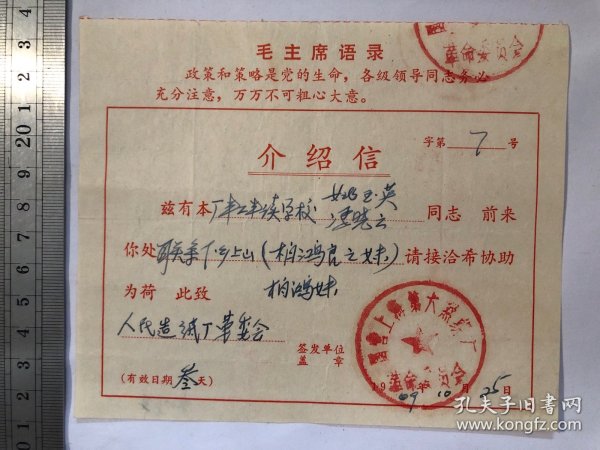 革命委员会
毛主席语录
政策和策略是党的生命，各级领导同志务必
充分注意，万万不可粗心大意。
字第 7 号
介绍信
兹有本厂半工半读学校 姚玉英 同志 前来
你处联系下乡上山（柏鸿良之妹）请接洽希协助
为荷 此致 柏鸿妹
人民造纸厂革委会
签发单位
盖章
革命委员会
(有效日期叁天)
1969年10月25日
孔夫子旧书网
www.kongfz.com